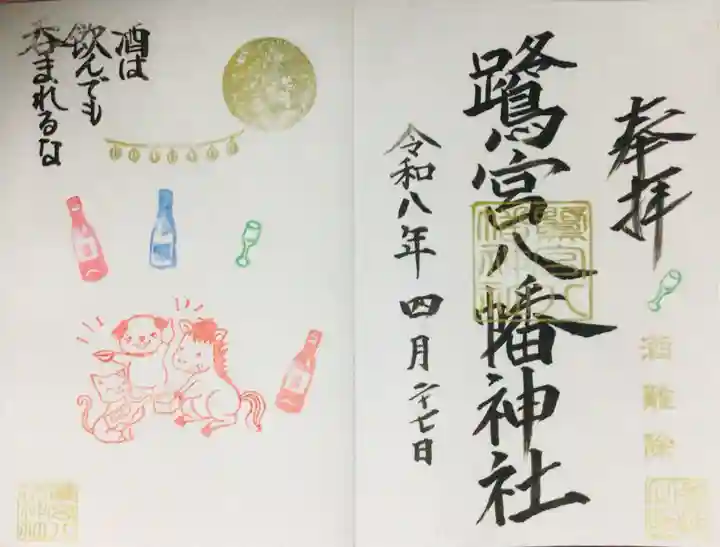 奉拝
酒難除
鷺宮八幡神社
令和八年四月二十七日
酒は
飲んでも
呑まれるな